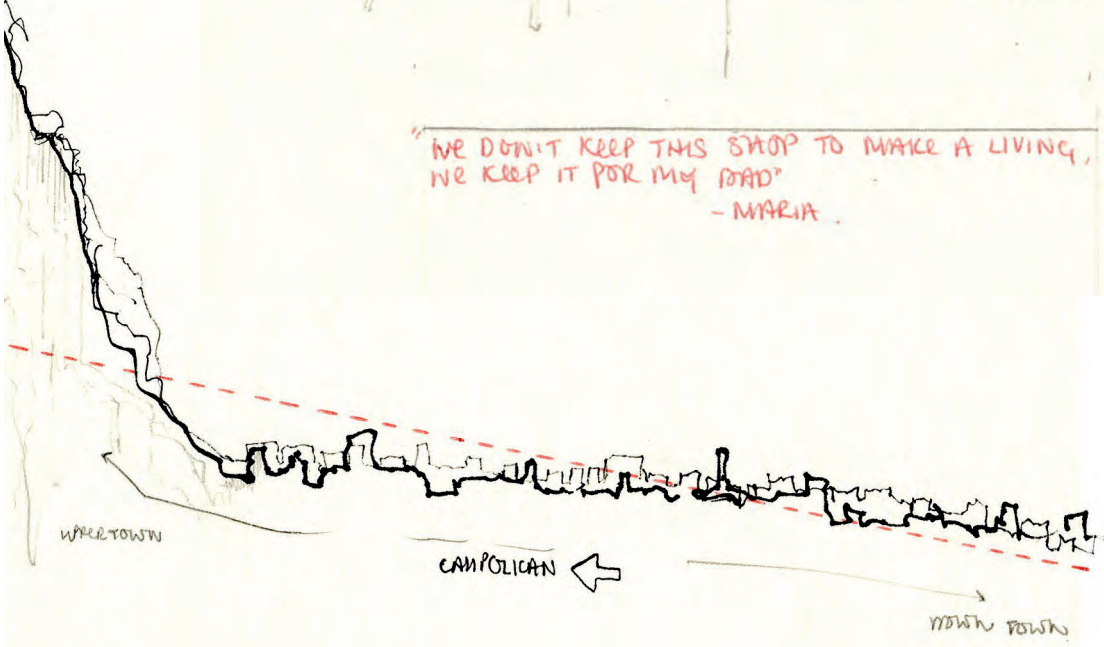 "WE DON'T KEEP THIS SHOP TO MAKE A LIVING,
WE KEEP IT FOR MY DAD"
- MARIA.
CAMPOLICAN
DOWN TOWN